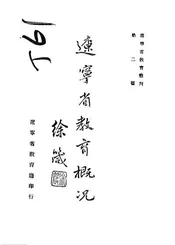 遼寧省教育叢刊
第二種
遼寧省教育概況
徐箴
遼寧省教育廳印行